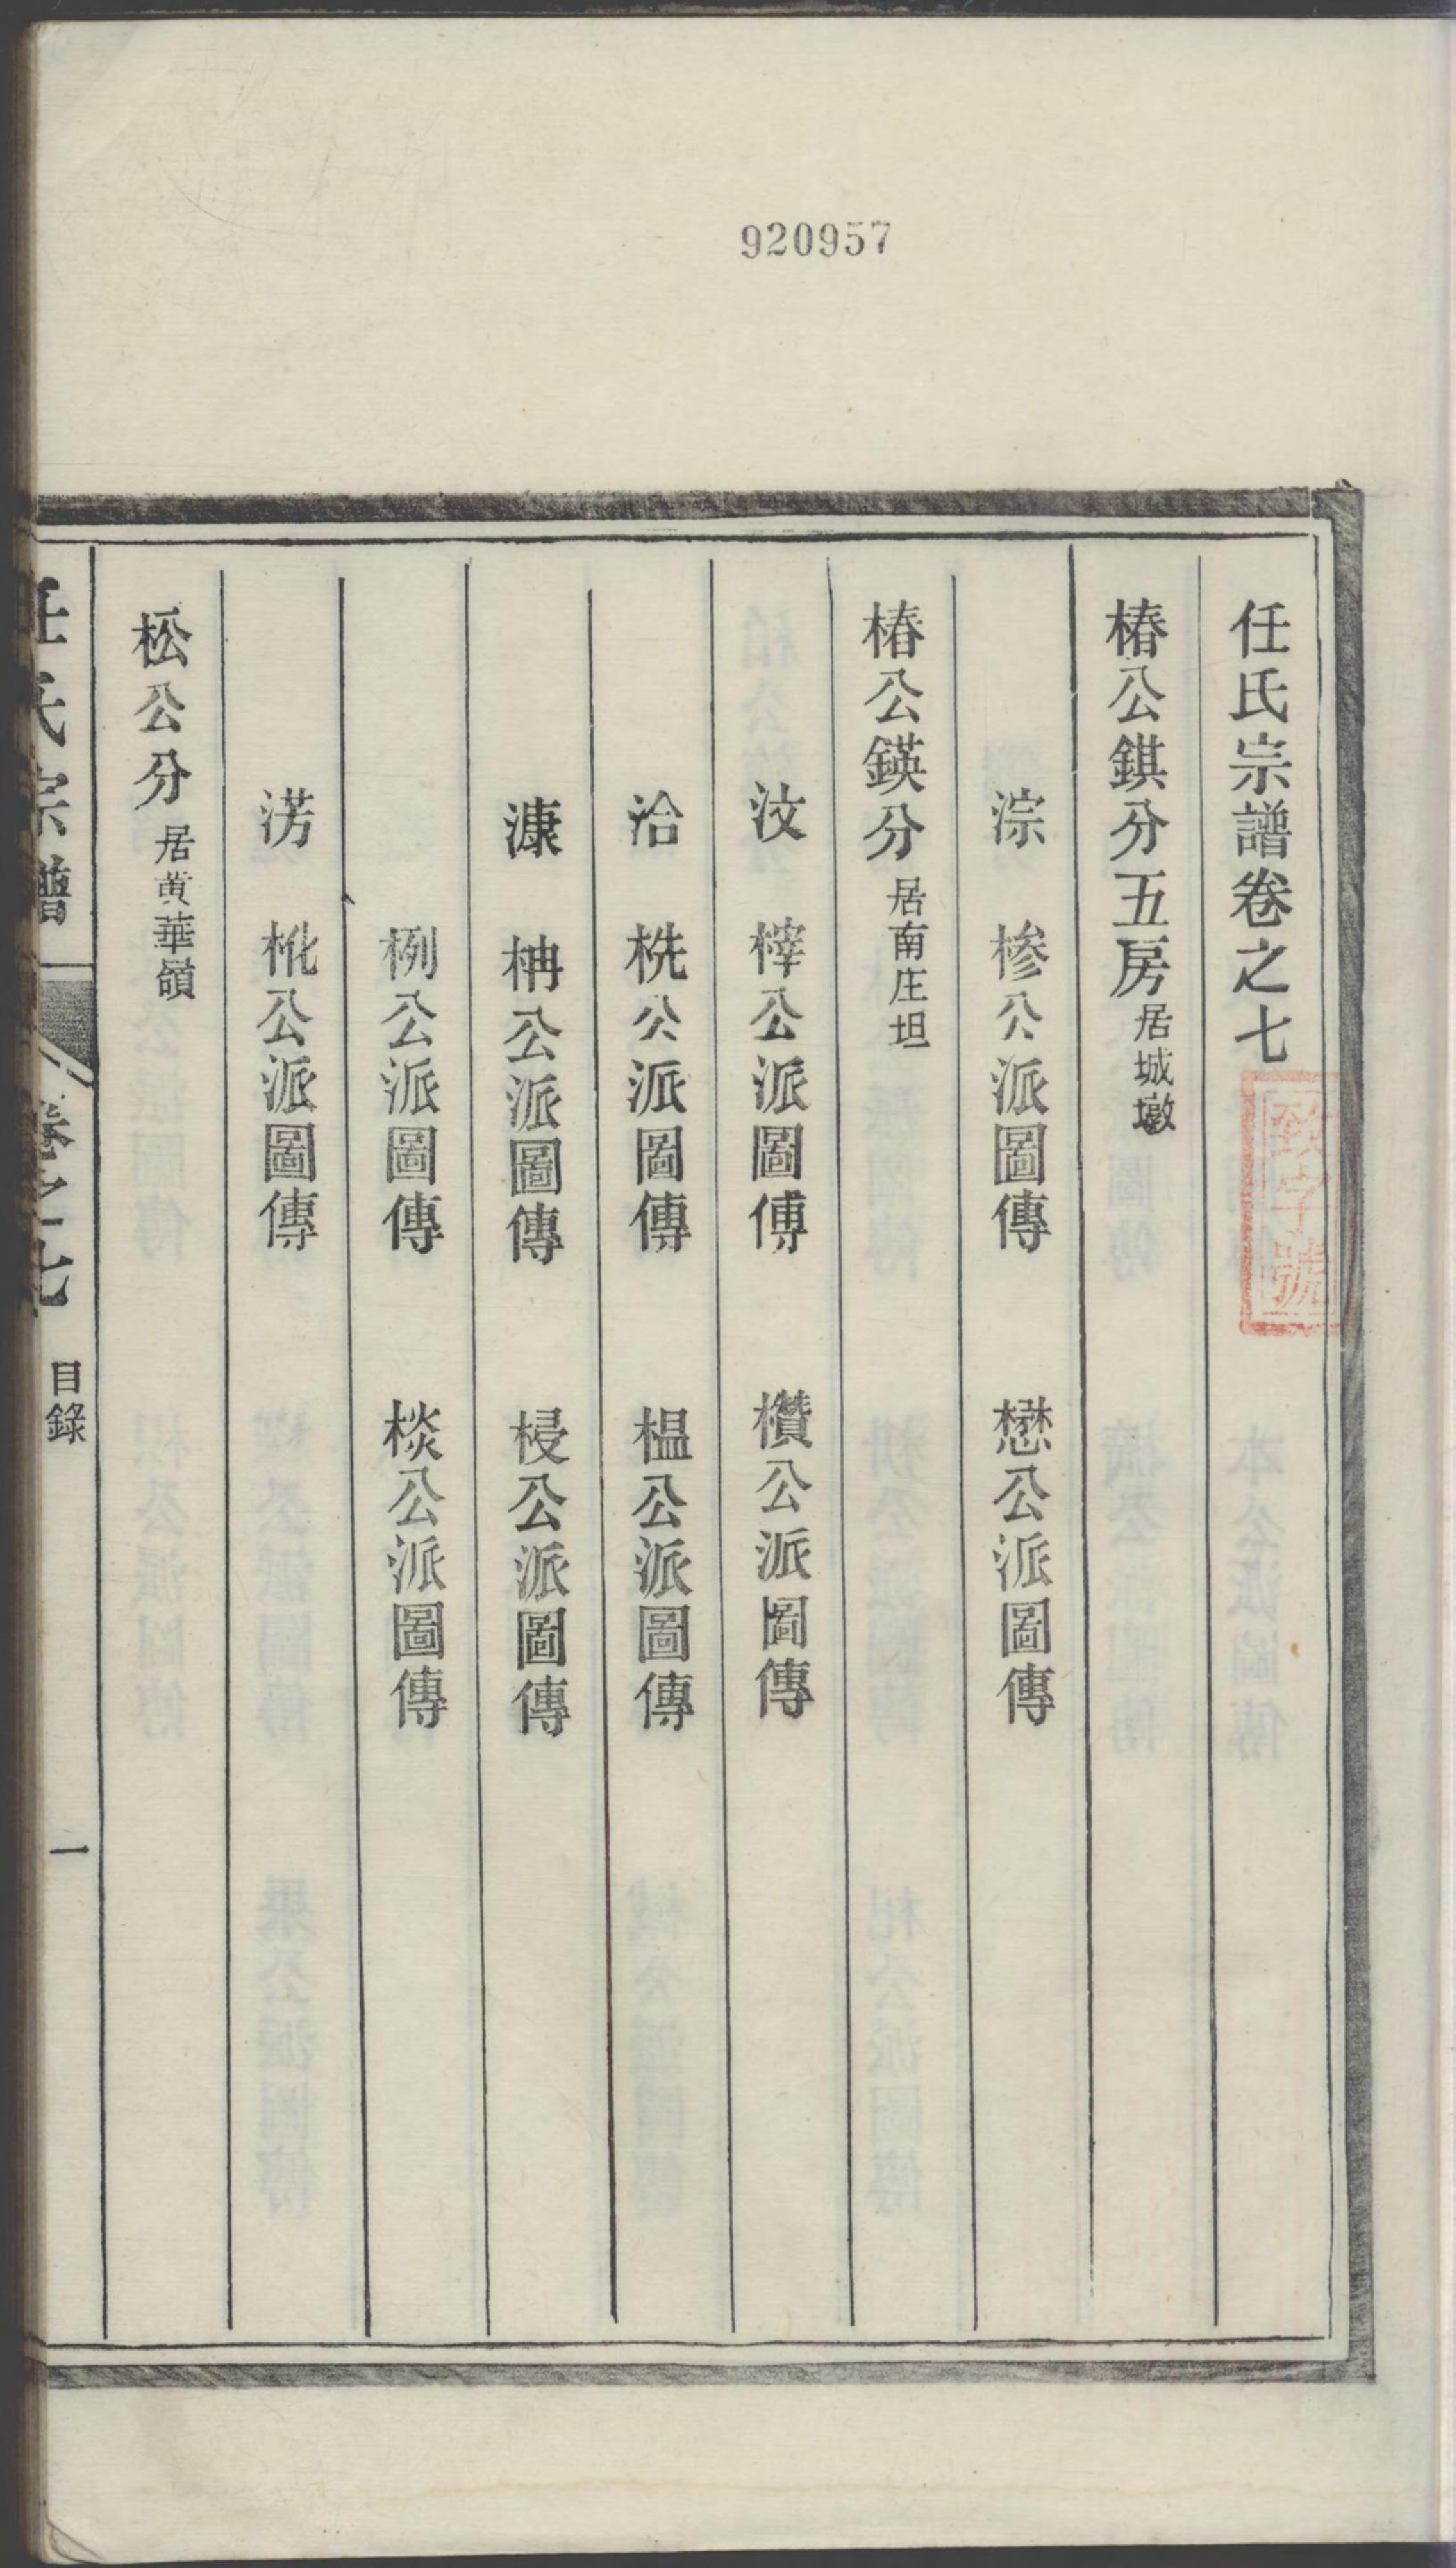 920957
任氏宗譜卷之七
致字號
椿公錤分五房居城墩
淙 槮公派圖傳 懋公派圖傳
椿公鍈分居南庄坦
汶 榟公派圖傳 欑公派圖傳
洽 桄公派圖傳 榅公派圖傳
漮 柟公派圖傳 梫公派圖傳
栵公派圖傳 棪公派圖傳
淓 枇公派圖傳
松公分居黄華嶺
任氏宗譜 卷之七 目錄 一